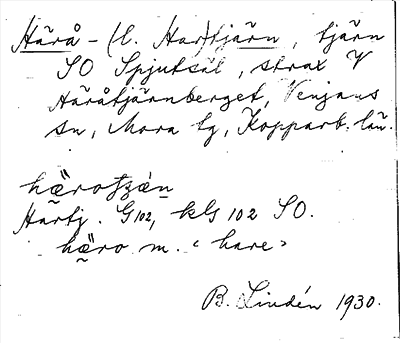 Härå - (l. Har)tjärn, tjärn
SO Spjutsäl, strax V
Häråtjärnberget, Venjans
sn, Mora tg, Kopparb. län.
hærotzɛ́n
Härtj. G102, kls 102 SO.
hæ̈ro m. "hare"
B. Lindén 1930.